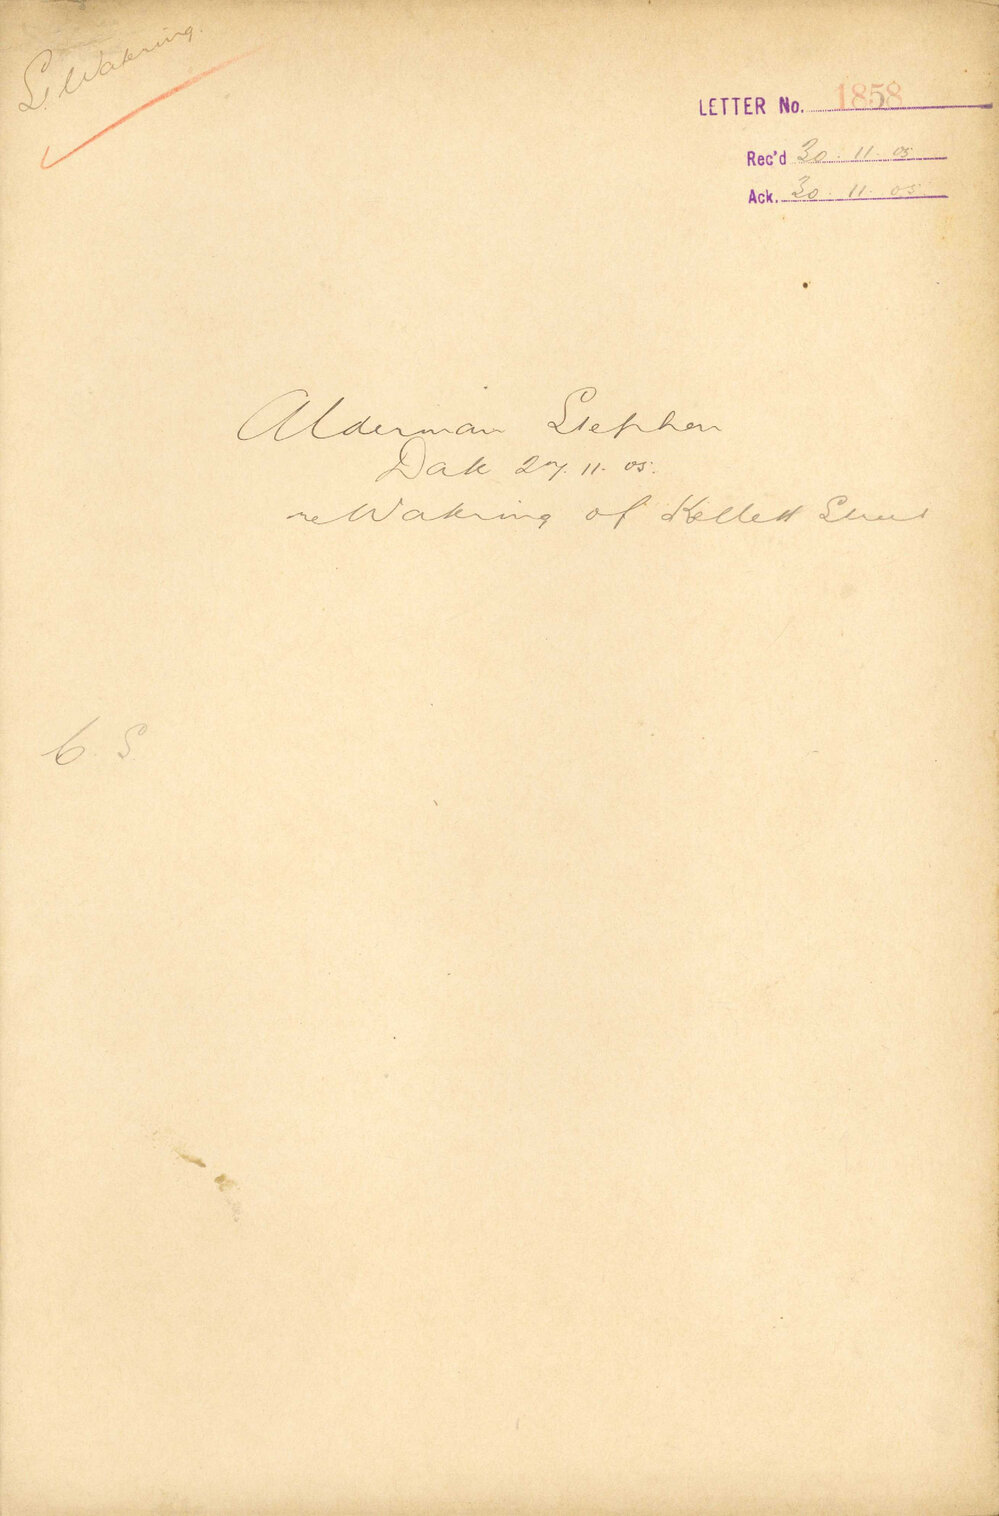 St Watering.
LETTER No. 1858
Rec'd 30. 11. 05
Ack. 30. 11. 05
Alderman Stephen
Date 27. 11. 05.
re Watering of Kellett Street
C. S